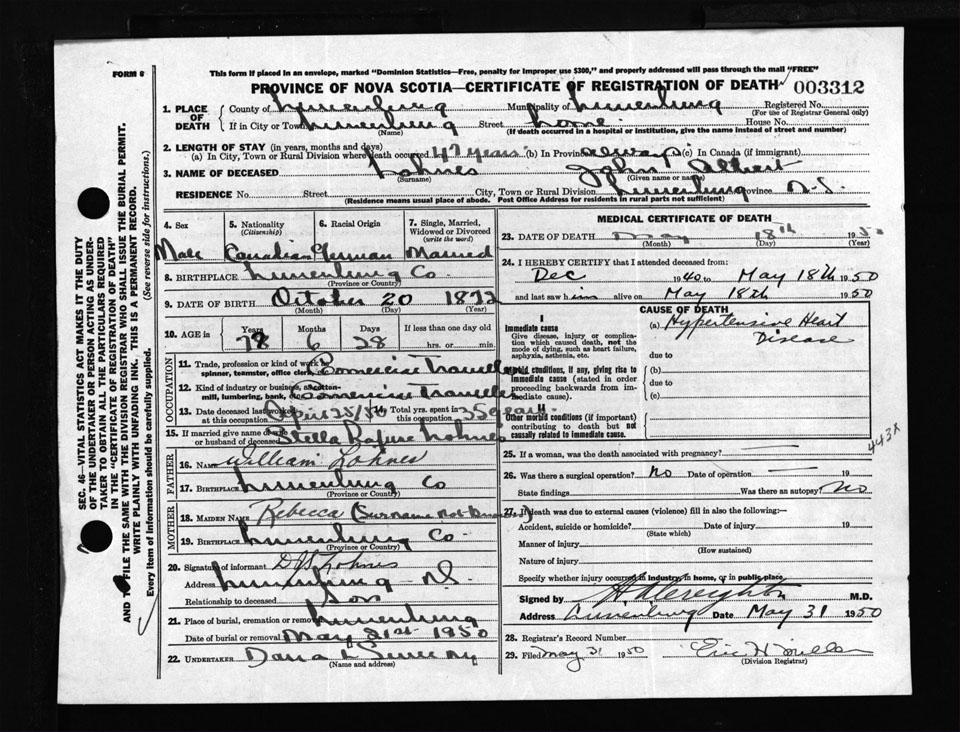 FORM 8
This form if placed in an envelope, marked "Dominion Statistics—Free, penalty for improper use $300," and properly addressed will pass through the mail "FREE"
PROVINCE OF NOVA SCOTIA—CERTIFICATE OF REGISTRATION OF DEATH 003312
SEC. 46—VITAL STATISTICS ACT MAKES IT THE DUTY
OF THE UNDERTAKER OR PERSON ACTING AS UNDER-
TAKER TO OBTAIN ALL THE PARTICULARS REQUIRED
IN THE "CERTIFICATE OF REGISTRATION OF DEATH"
AND TO FILE THE SAME WITH THE DIVISION REGISTRAR WHO SHALL ISSUE THE BURIAL PERMIT.
WRITE PLAINLY WITH UNFADING INK. THIS IS A PERMANENT RECORD.
Every item of information should be carefully supplied. (See reverse side for instructions.)
1. PLACE OF DEATH County of Lunenburg Municipality of Lunenburg Registered No.
(For use of Registrar General only)
If in City or Town Lunenburg Street home House No.
(Name) (If death occurred in a hospital or institution, give the name instead of street and number)
2. LENGTH OF STAY (in years, months and days)
(a) In City, Town or Rural Division where death occurred 47 years (b) In Province always (c) In Canada (if immigrant)
3. NAME OF DECEASED Lohnes John Albert
(Surname) (Given name or names)
RESIDENCE No. Street City, Town or Rural Division Lunenburg Province N.S.
(Residence means usual place of abode. Post Office Address for residents in rural parts not sufficient)
4. Sex 5. Nationality (Citizenship) 6. Racial Origin 7. Single, Married, Widowed or Divorced (write the word)
Male Canadian German Married
8. BIRTHPLACE Lunenburg Co
(Province or County)
9. DATE OF BIRTH October 20 1872
(Month) (Day) (Year)
10. AGE in Years Months Days If less than one day old
6 28 hrs. or min.
OCCUPATION
11. Trade, profession or kind of work as spinner, teamster, office clerk
12. Kind of industry or business, as cotton-mill, lumbering, bank,
13. Date deceased last worked at this occupation Total yrs. spent in 35 years
15. If married give name of wife or husband of deceased Stella Rafuse Lohnes
FATHER
16. Name William Lohnes
17. Birthplace Lunenburg Co
(Province or County)
MOTHER
18. Maiden Name Rebecca (Surname not known)
19. Birthplace Lunenburg Co
(Province or County)
20. Signature of informant Lohnes
Address Lunenburg N.S.
Relationship to deceased Son
21. Place of burial, cremation or removal Lunenburg
Date of burial or removal May 21st 1950
22. UNDERTAKER
(Name and address)
MEDICAL CERTIFICATE OF DEATH
23. DATE OF DEATH May 18th 1950
(Month) (Day) (Year)
24. I HEREBY CERTIFY that I attended deceased from:
Dec 1940 to May 18th 1950
and last saw him alive on May 18th 1950
CAUSE OF DEATH
I
Immediate cause
Give disease, injury or complication which caused death, not the mode of dying, such as heart failure, asphyxia, asthenia, etc.
(a) Hypertensive Heart Disease
due to
Morbid conditions, if any, giving rise to immediate cause (stated in order proceeding backwards from immediate cause).
(b)
due to
(c)
II
Other morbid conditions (if important) contributing to death but not causally related to immediate cause.
443X
25. If a woman, was the death associated with pregnancy?
26. Was there a surgical operation? No Date of operation — 19
State findings Was there an autopsy? No
27. If death was due to external causes (violence) fill in also the following:—
Accident, suicide or homicide? Date of injury 19
(State which)
Manner of injury
(How sustained)
Nature of injury
Specify whether injury occurred in industry, in home, or in public place.
Signed by H A Creighton M.D.
Address Lunenburg Date May 31 1950
28. Registrar's Record Number
29. Filed May 31 1950 Eric H Miller
(Division Registrar)